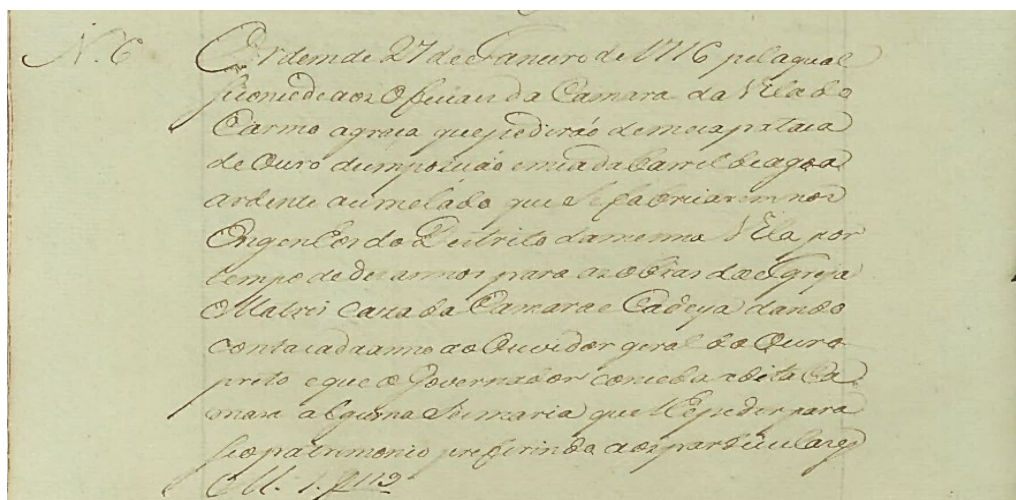 N. 6 Ordem de 27 de Janeiro de 1716 pela qual
se concede aos Officiaes da Camara da Vila do
Carmo a graça que pedirão de meia pataca
de Ouro de impozição em cada barril de agoa
ardente au melado que se fabricarem nos
Engenhos do Destrito da mesma Vila por
tempo de des annos para as obras da Igreja
Matris Caza da Camara e Cadeya dando
conta cada anno ao Ouvidor geral do Ouro
preto e que o Governador conceda a dita Ca
mara alguma Sesmaria que lhe pedir para
seo patrimonio preferindo aos particulares